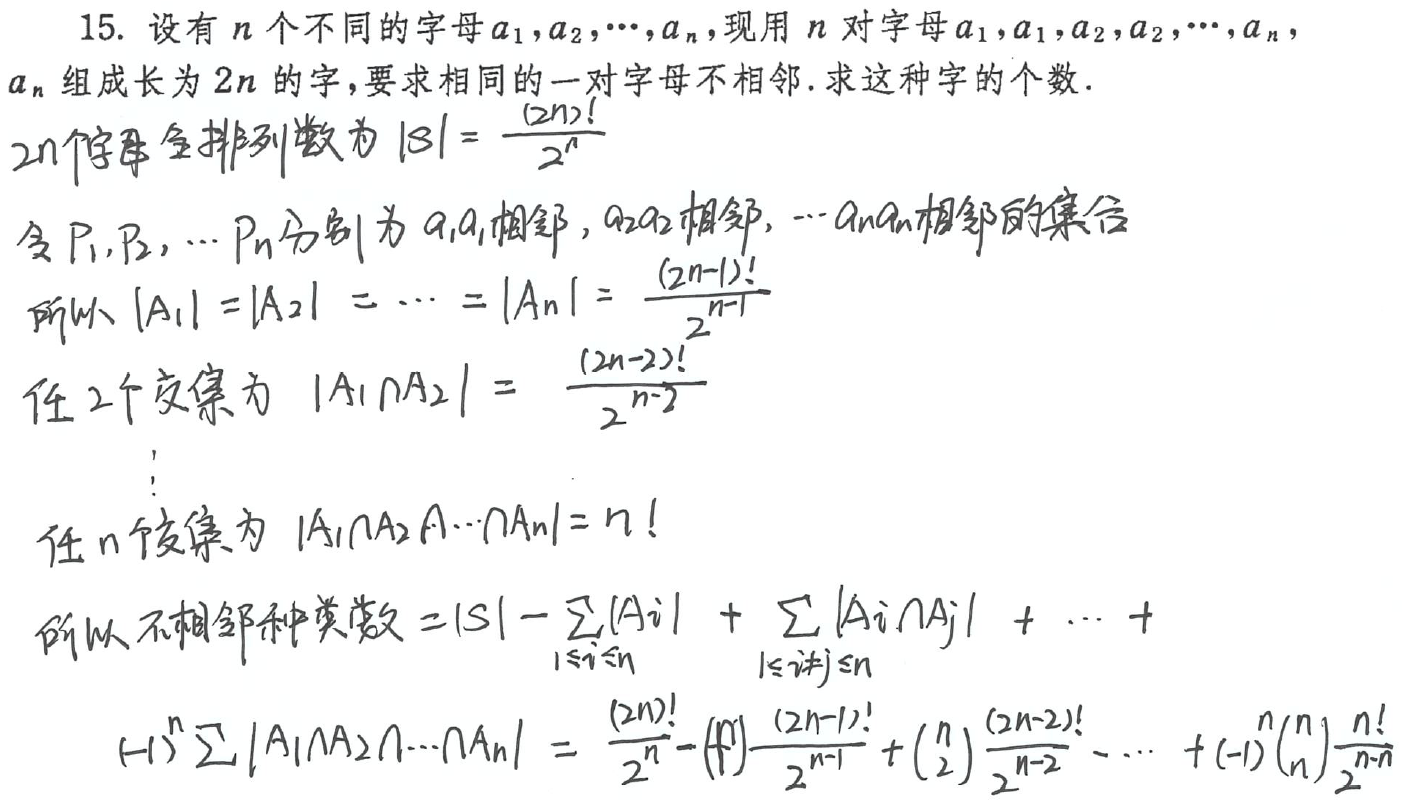 15. 设有 n 个不同的字母 a₁,a₂,⋯,aₙ,现用 n 对字母 a₁,a₁,a₂,a₂,⋯,aₙ,
aₙ 组成长为 2n 的字,要求相同的一对字母不相邻.求这种字的个数.
2n个字母全排列数为 |S| = (2n)!/2ⁿ
令 P₁,P₂,⋯Pₙ分别为 a₁a₁相邻, a₂a₂相邻, ⋯aₙaₙ相邻的集合
所以 |A₁| = |A₂| = ⋯ = |Aₙ| = (2n-1)!/2ⁿ⁻¹
任 2个交集为 |A₁∩A₂| = (2n-2)!/2ⁿ⁻²
⋮
任 n个交集为 |A₁∩A₂∩⋯∩Aₙ| = n!
所以不相邻种类数 = |S| - ∑_{1≤i≤n}|Ai| + ∑_{1≤i≠j≤n}|Ai∩Aj| + ⋯ +
(-1)ⁿ∑|A₁∩A₂∩⋯∩Aₙ| = (2n)!/2ⁿ - (n 1)(2n-1)!/2ⁿ⁻¹ + (n 2)(2n-2)!/2ⁿ⁻² - ⋯ + (-1)ⁿ(n n)n!/2ⁿ⁻ⁿ